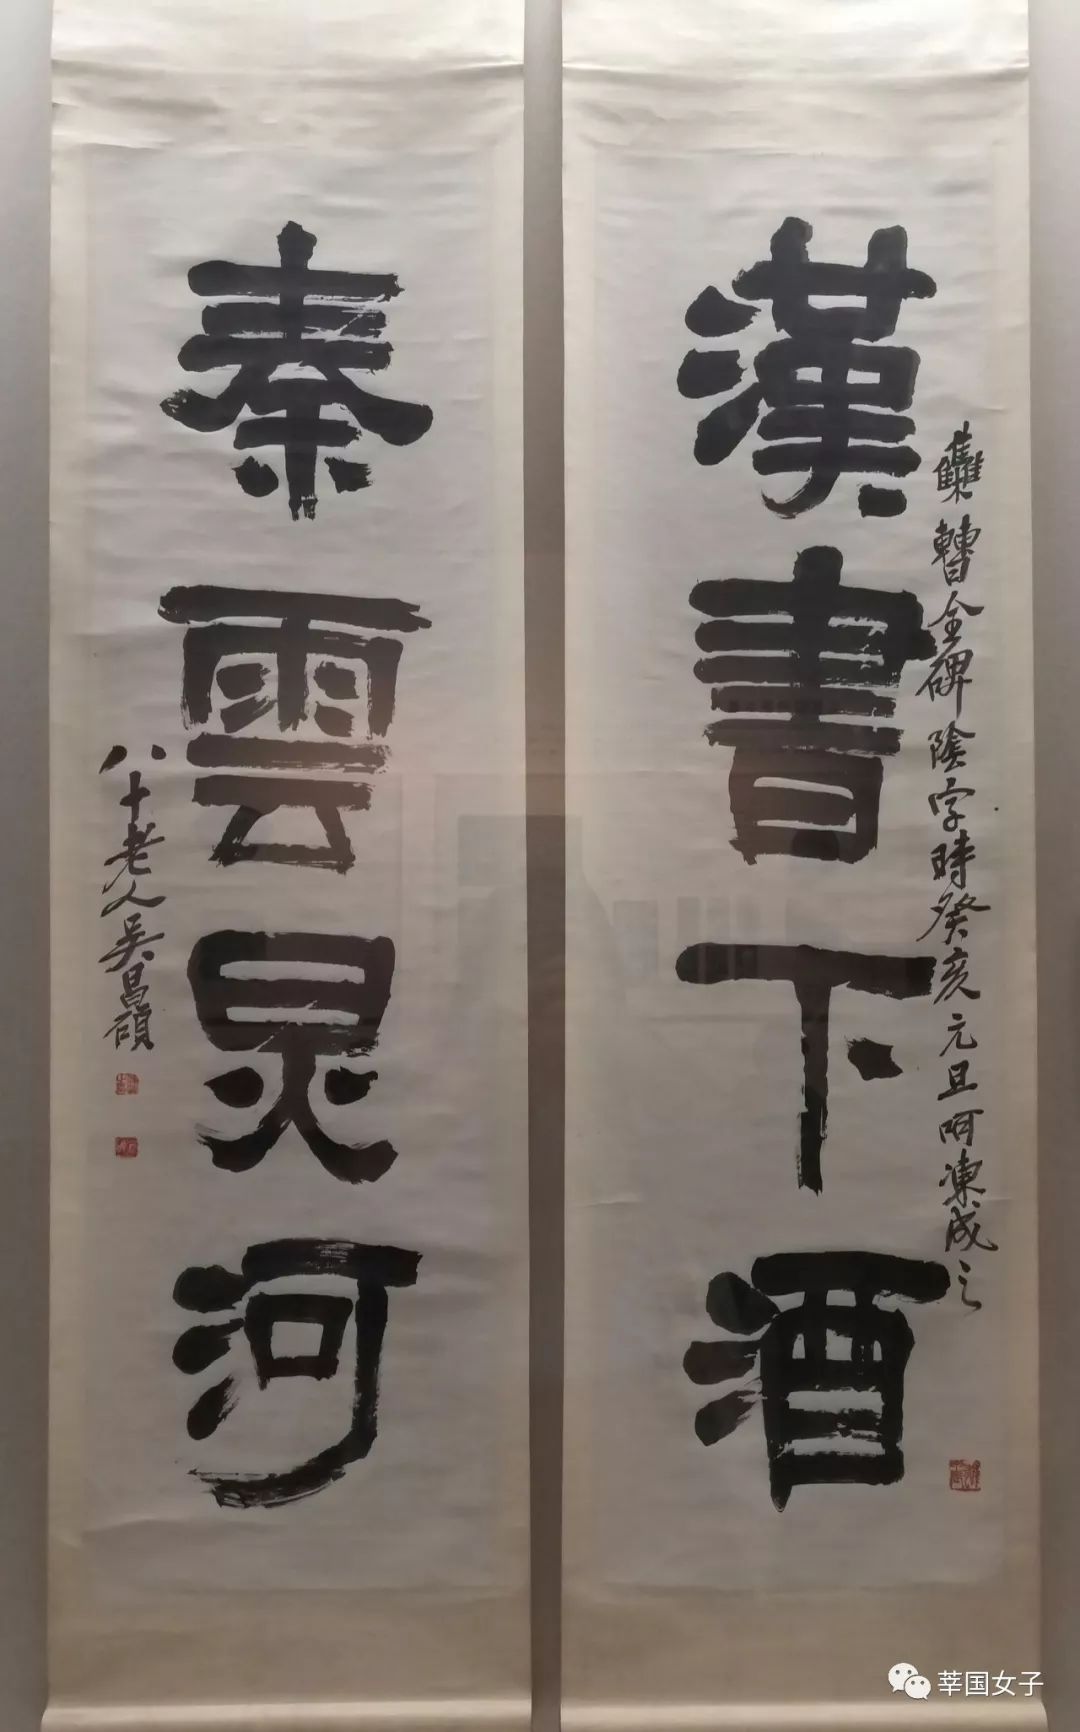 漢書下酒
雧曹全碑陰字時癸亥元旦呵凍成之
秦雲炅河
八十老人吳昌碩
莘国女子